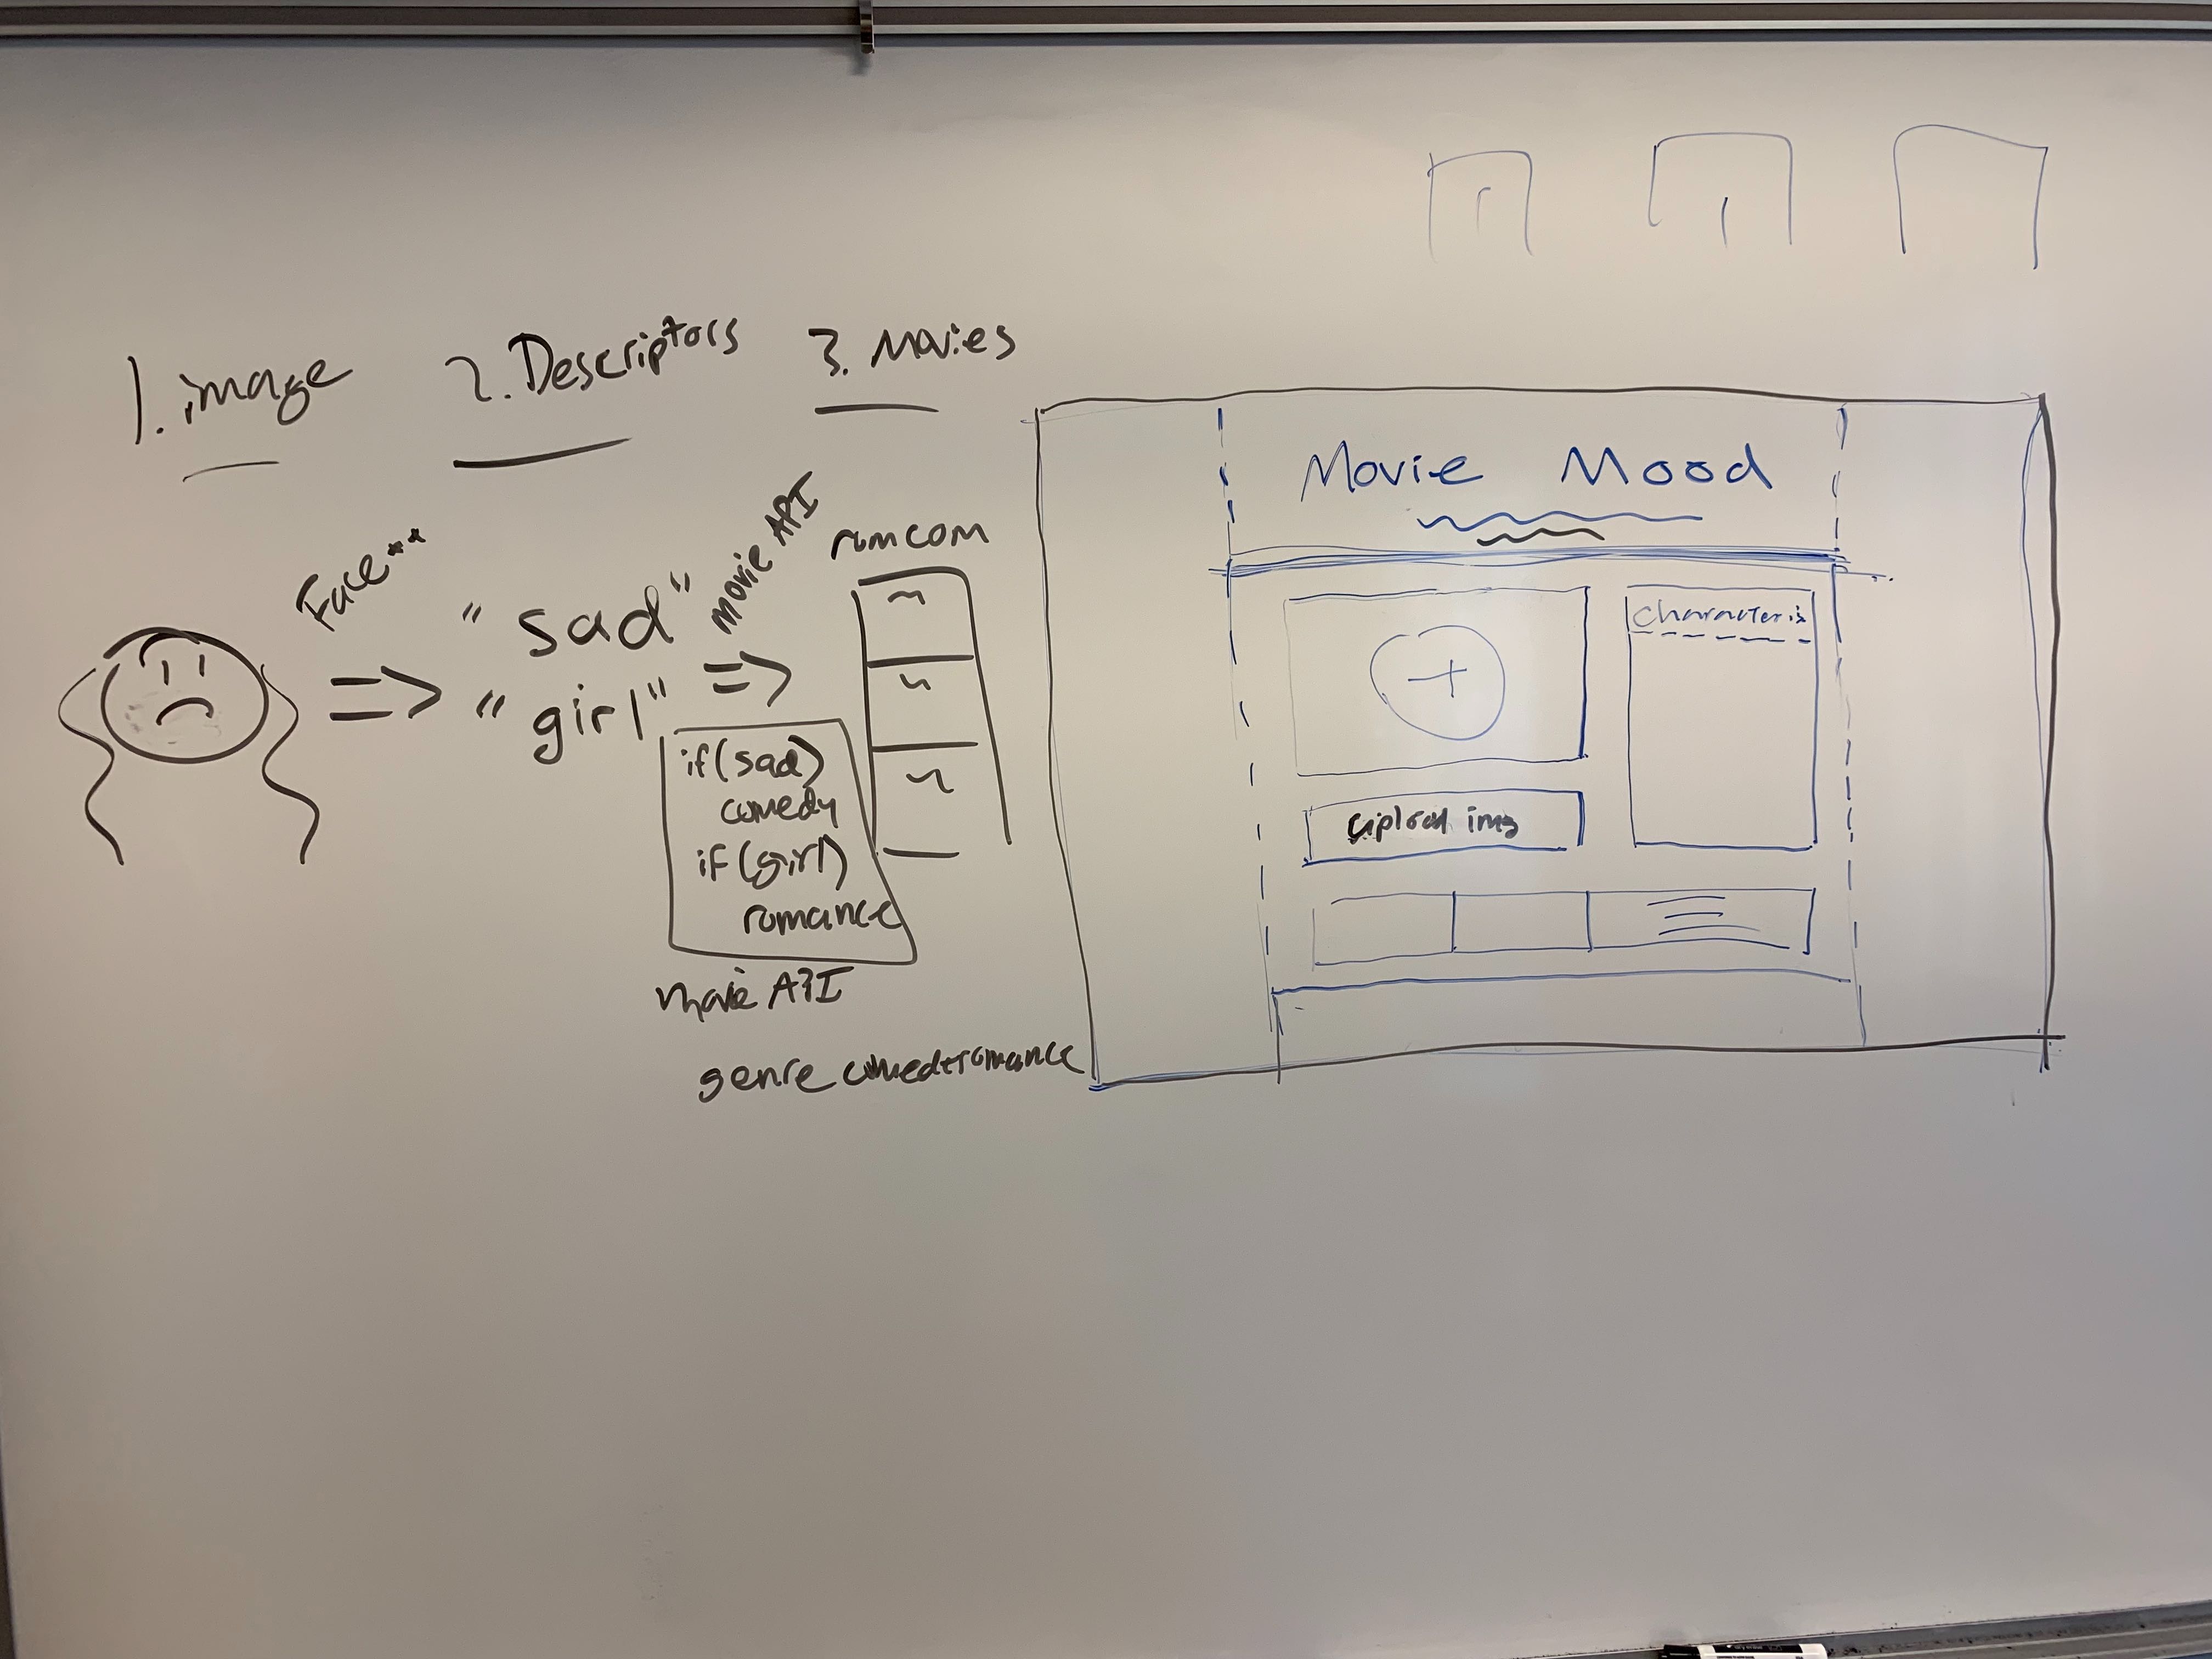 1. image
2. Descriptors
3. Movies
Face**
"sad"
"girl"
movie API
romcom
if(sad)
comedy
if(girl)
romance
movie API
genre
Movie Mood
+
characteris
upload img